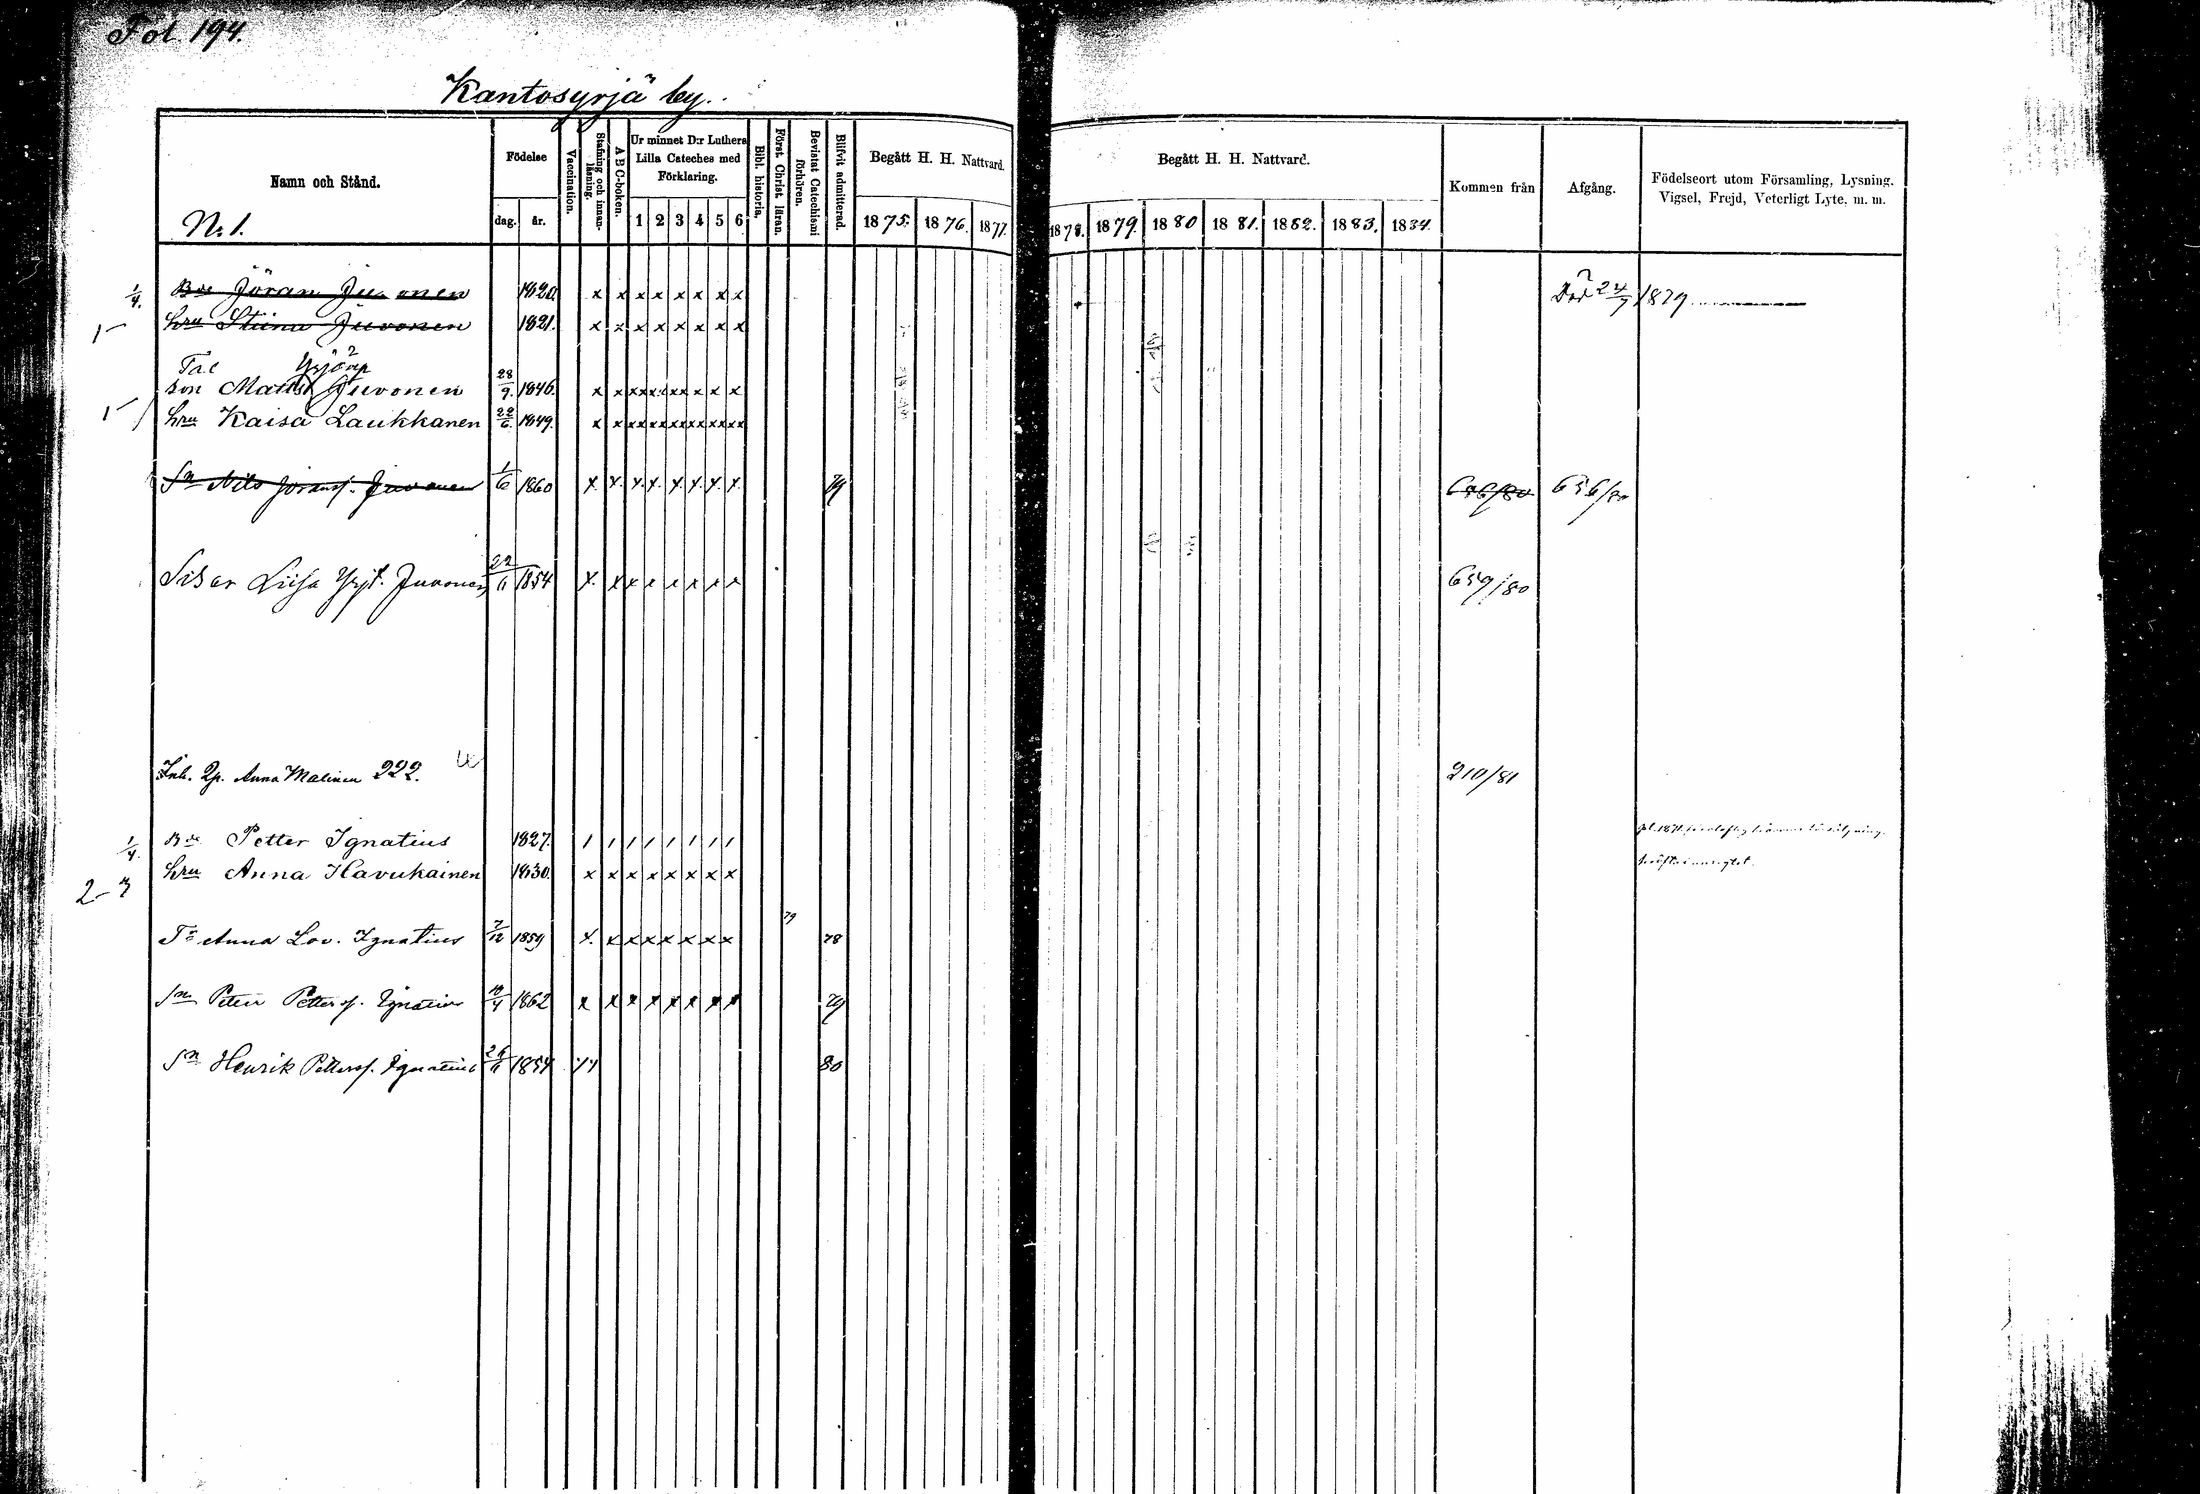 Fol 194.
Kantosyrjä by.
Namn och Stånd.
N:o 1.
Födelse
dag. år.
Vaccination.
Stafning och innanläsning.
A B C-boken.
Ur minnet D:r Luthers Lilla Cateches med Förklaring.
1 2 3 4 5 6
Bibl. historia.
Först. Christ. läran.
Bevistat Catechismi förhören.
Blifvit admitterad.
Begått H. H. Nattvard.
1875. 1876. 1877.
Begått H. H. Nattvard.
1878. 1879. 1880 1881. 1882. 1883. 1884.
Kommen från
Afgång.
Födelseort utom Församling, Lysning, Vigsel, Frejd, Veterligt Lyte, m. m.
1/4. Bde Jöran Juvonen 1820. x x x x x x x x Död 24/7 1879
1 hru Stiina Juvonen 1821. x x x x x x x x
son Matts Juvonen 28/9. 1846. x x xx x x xx x x x
1 hru Kaisa Laukkanen 22/6. 1849. x x xx xx xx xx xx xx
Sn Nils Jöranss. Juvonen 1/6 1860 x x x x x x x x 79 656/80 656/80
Sisar Liisa Yrjt. Juvonen 22/11 1854 x x x x x x x x 659/80
Inh. Anna Malinen 222. 210/81
1/4. Bde Petter Ignatius 1827. / / / / / / / /
hru Anna Havukainen 1830. x x x x x x x x
2 3
Tr Anna Lov. Ignatius 7/12 1859 x x x x x x x x 79 78
Sn Petter Petterss. Ignatius 10/4 1862 x x x x x x x x 79
Sn Henrik Petterss. Ignatius 24/11 1854 80